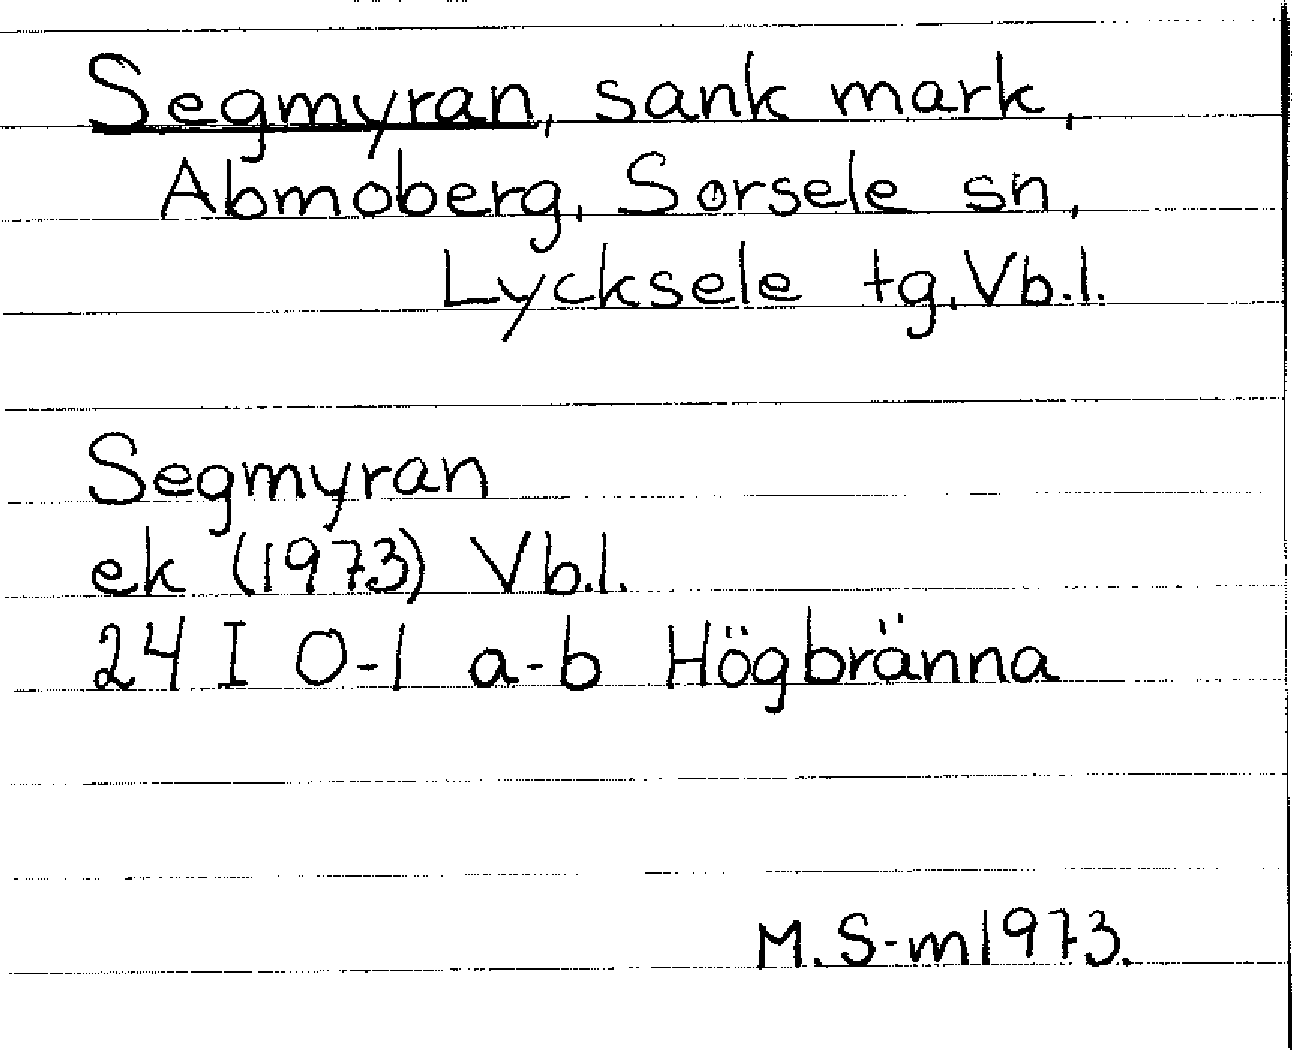 Segmyran, sank mark,
Abmoberg, Sorsele sn,
Lycksele tg. Vb.l.
Segmyran
ek (1973) Vb.l.
24 I 0-1 a-b Högbränna
M. S-m 1973.